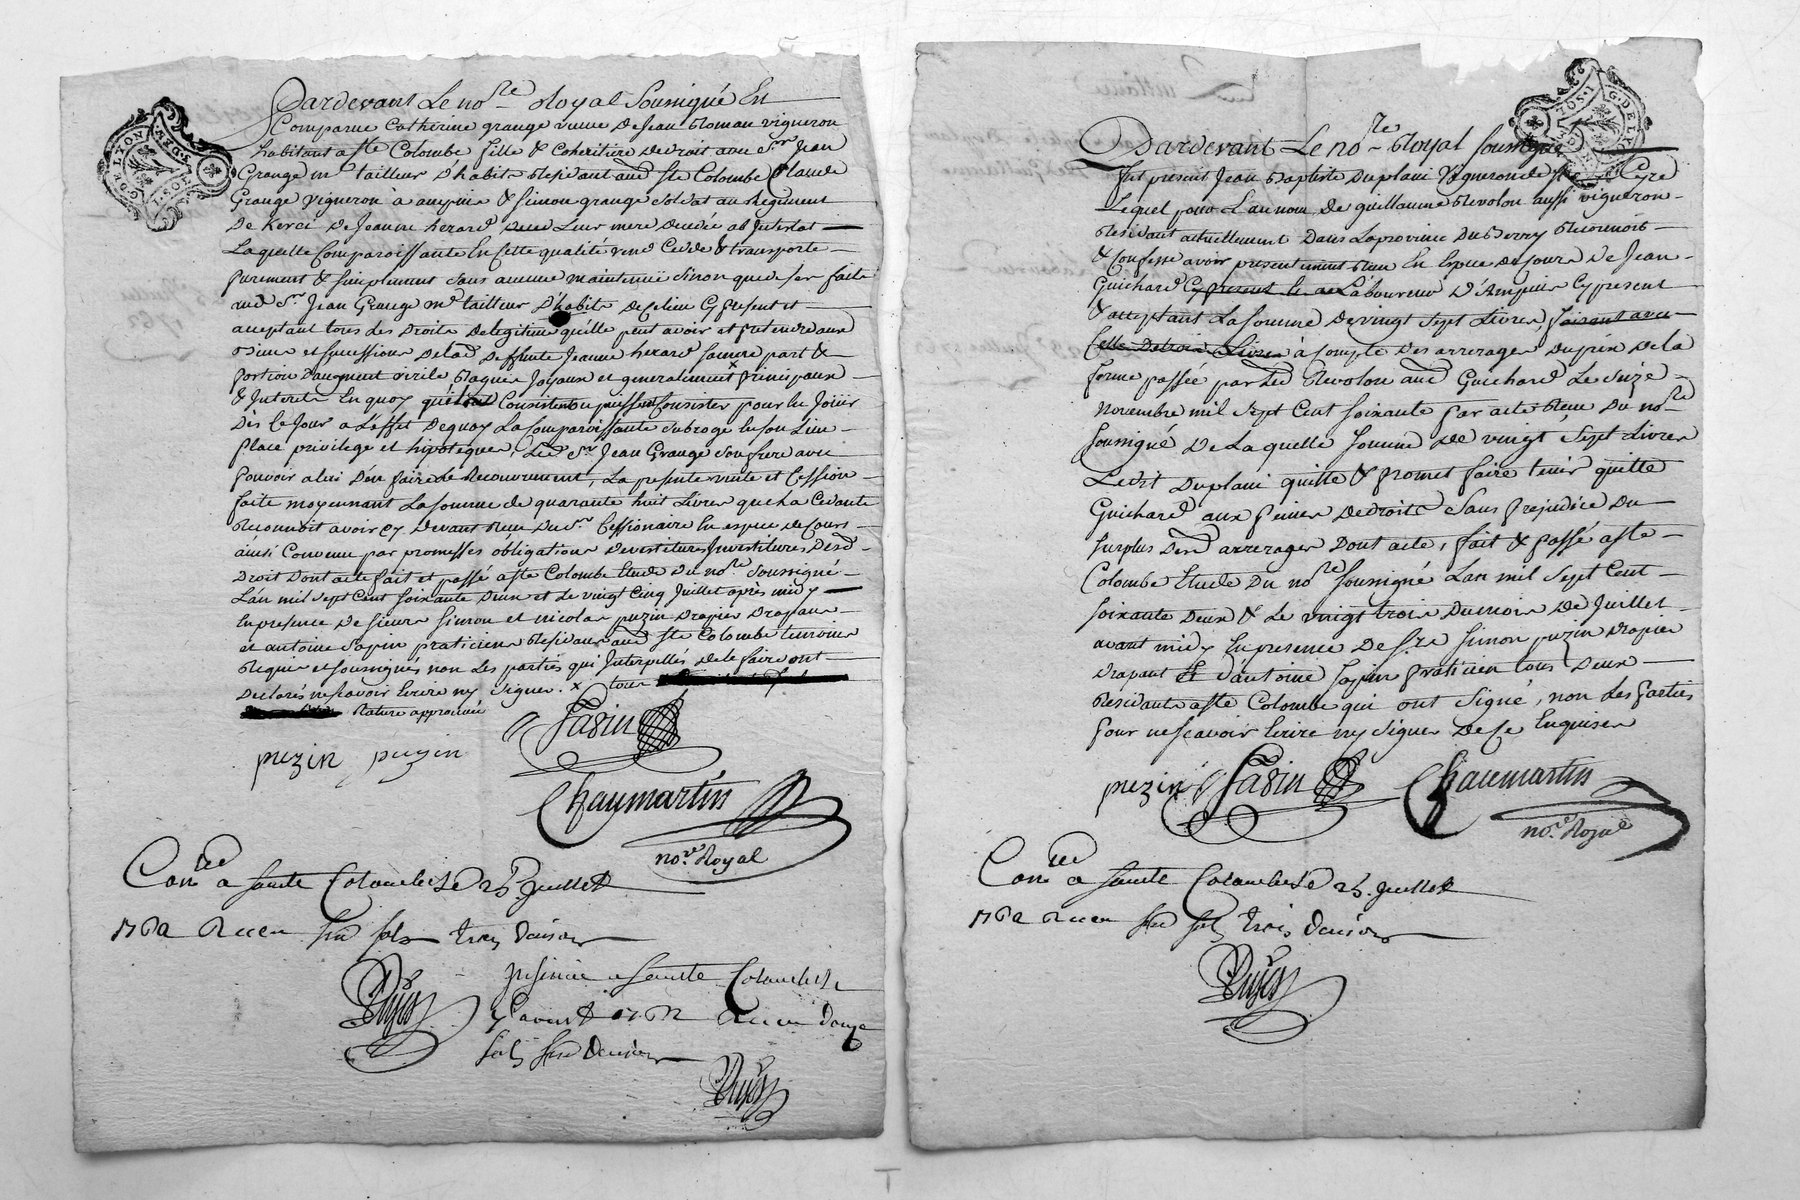 G. DE LYON
Pardevant Le no.re Royal Soussigné En
Comparue Catherine grange veuve De Jean Roman vigneron
habitant a ste Colombe fille & Coheritiere De droit avec Sr. Jean
Grange me. tailleur D'habits Residant aud. ste Colombe Claude
Grange vigneron à ampuis & Simon grange Soldat au Regiment
De Jeanne herard Leur mere Decedée ab Intestat
Laquelle Comparoissante En Cette qualité vend Cedde & transporte
purement & Simplement Sans aucune maintenue Sinon que de ses faits
aud. Sr. Jean Grange me. tailleur D'habits Cy present et
acceptant tous Les Droits De legitime qu'elle peut avoir et pretendre aux
Biens et succession De lad. Deffunte Jeanne herard part &
portion D'augment virile Bagues Joyaux et generalement x principaux
& Interets En quoy Consistent ou puissent Consister pour En Joüir
Dès le Jour a L'effet Dequoy La Comparoissante Subroge En Son Lieu
place privilege et hipoteques, Led. Sr. Jean Grange Son frere avec
pouvoir a lui D'en faire Le Recouvrement, La presente vente et Cession
faite moyennant La Somme de quarante huit Livres que La Cedante
Reconnoit avoir Cy Devant Reçu Du Sr. Cessionaire En espece de Cours
ainsi Convenu par promesses obligations Devestitures Investitures Desd.
Droit Dont acte fait et passé a ste Colombe Etude Du no.re Soussigné
L'an mil Sept Cent Soixante Deux et Le vingt Cinq Juillet après midy
En presence De Sieurs Simon et Nicolas puzin Drapiers Drapans
et antoine Sapin praticien Residans aud. ste Colombe temoins
Requis et Soussignés non Les parties qui Interpellés De le faire ont
Declarés ne scavoir Ecrire ny Signer. x tous
Rature approuvée
puzin puzin Sapin
Chaumartin
no.re Royal
Con.lé a Sainte Colombe Le 25 Juillet
1762 Recu six sols trois Deniers
Insinué a Sainte Colombe Le
aoust 1762 Recu Douze
sols six Deniers
G. DE LYON
Pardevant Le no.re Royal Soussigné
fut present Jean Baptiste Duplani Vigneron de st Cyre
Lequel pour & au nom De guillaume Revolon aussi vigneron
Residant actuellement Dans La province Du Berry Reconnois
& Confesse avoir presentement Reçu En Espece De Cours De Jean
Guichard Cy present Laboureur D'Ampuis Cy present
& acceptant La Somme De vingt Sept Livres, faisant avec
Celle De trois Livres à Compte Des arrerages Du prix De la
ferme passée par Led. Revolon aud. Guichard Le Seize
Novembre mil Sept Cent Soixante par acte Reçu Du no.re
Soussigné De La quelle Somme De vingt Sept Livres
Ledit Duplani quitte & promet faire tenir quitte
Guichard aux peines De droit Sans prejudice Du
Surplus Desd. arrerages Dont acte, fait & passé a ste
Colombe Etude Du no.re Soussigné L'an mil Sept Cent
Soixante Deux & Le vingt trois Du mois De Juillet
avant midy En presence De Srs Simon puzin Drapier
Drapant Et D'antoine Sapin praticien tous Deux
Residants a ste Colombe qui ont Signé, non Les parties
pour ne scavoir Ecrire ny Signer De Ce Enquises
puzin Sapin Chaumartin
no.re Royal
Con.lé a Sainte Colombe Le 25 Juillet
1762 Recu six sols trois Deniers